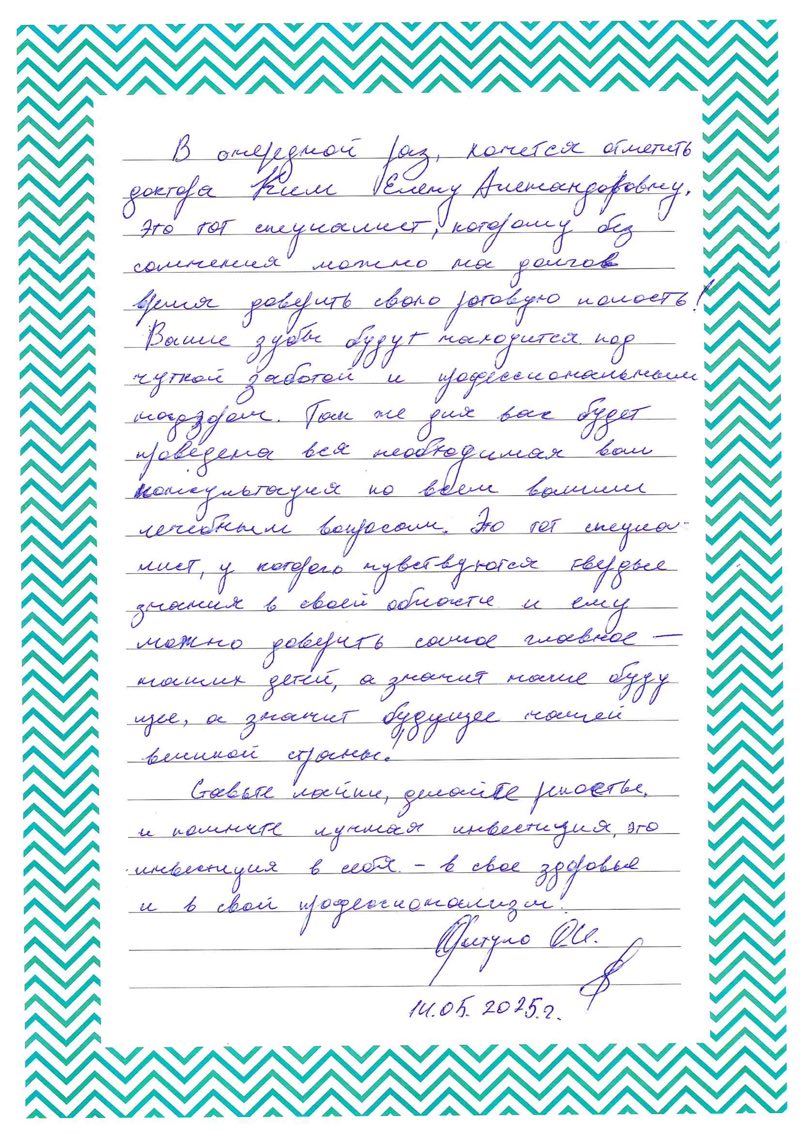 В очередной раз, хочется отметить
доктора Ким Елену Александоровну.
Это тот специалист, которому без
сомнения можно на долгое
время доверить свою ротовую полость!
Ваши зубы будут находится под
чуткой заботой и профессиональным
надзором. Так же для вас будет
проведена вся необходимая вам
консультация по всем вашим
лечебным вопросам. Это тот специа-
лист, у которого чувствуются твердые
знания в своей области и ему
можно доверить самое главное —
наших детей, а значит наше буду
щее, а значит будущее нашей
великой страны!
Ставьте лайки, делайте репосты,
и помните лучшая инвестиция, это
инвестиция в себя – в свое здоровье
и в свой профессионализм.
О.И.
14.05.2025г.